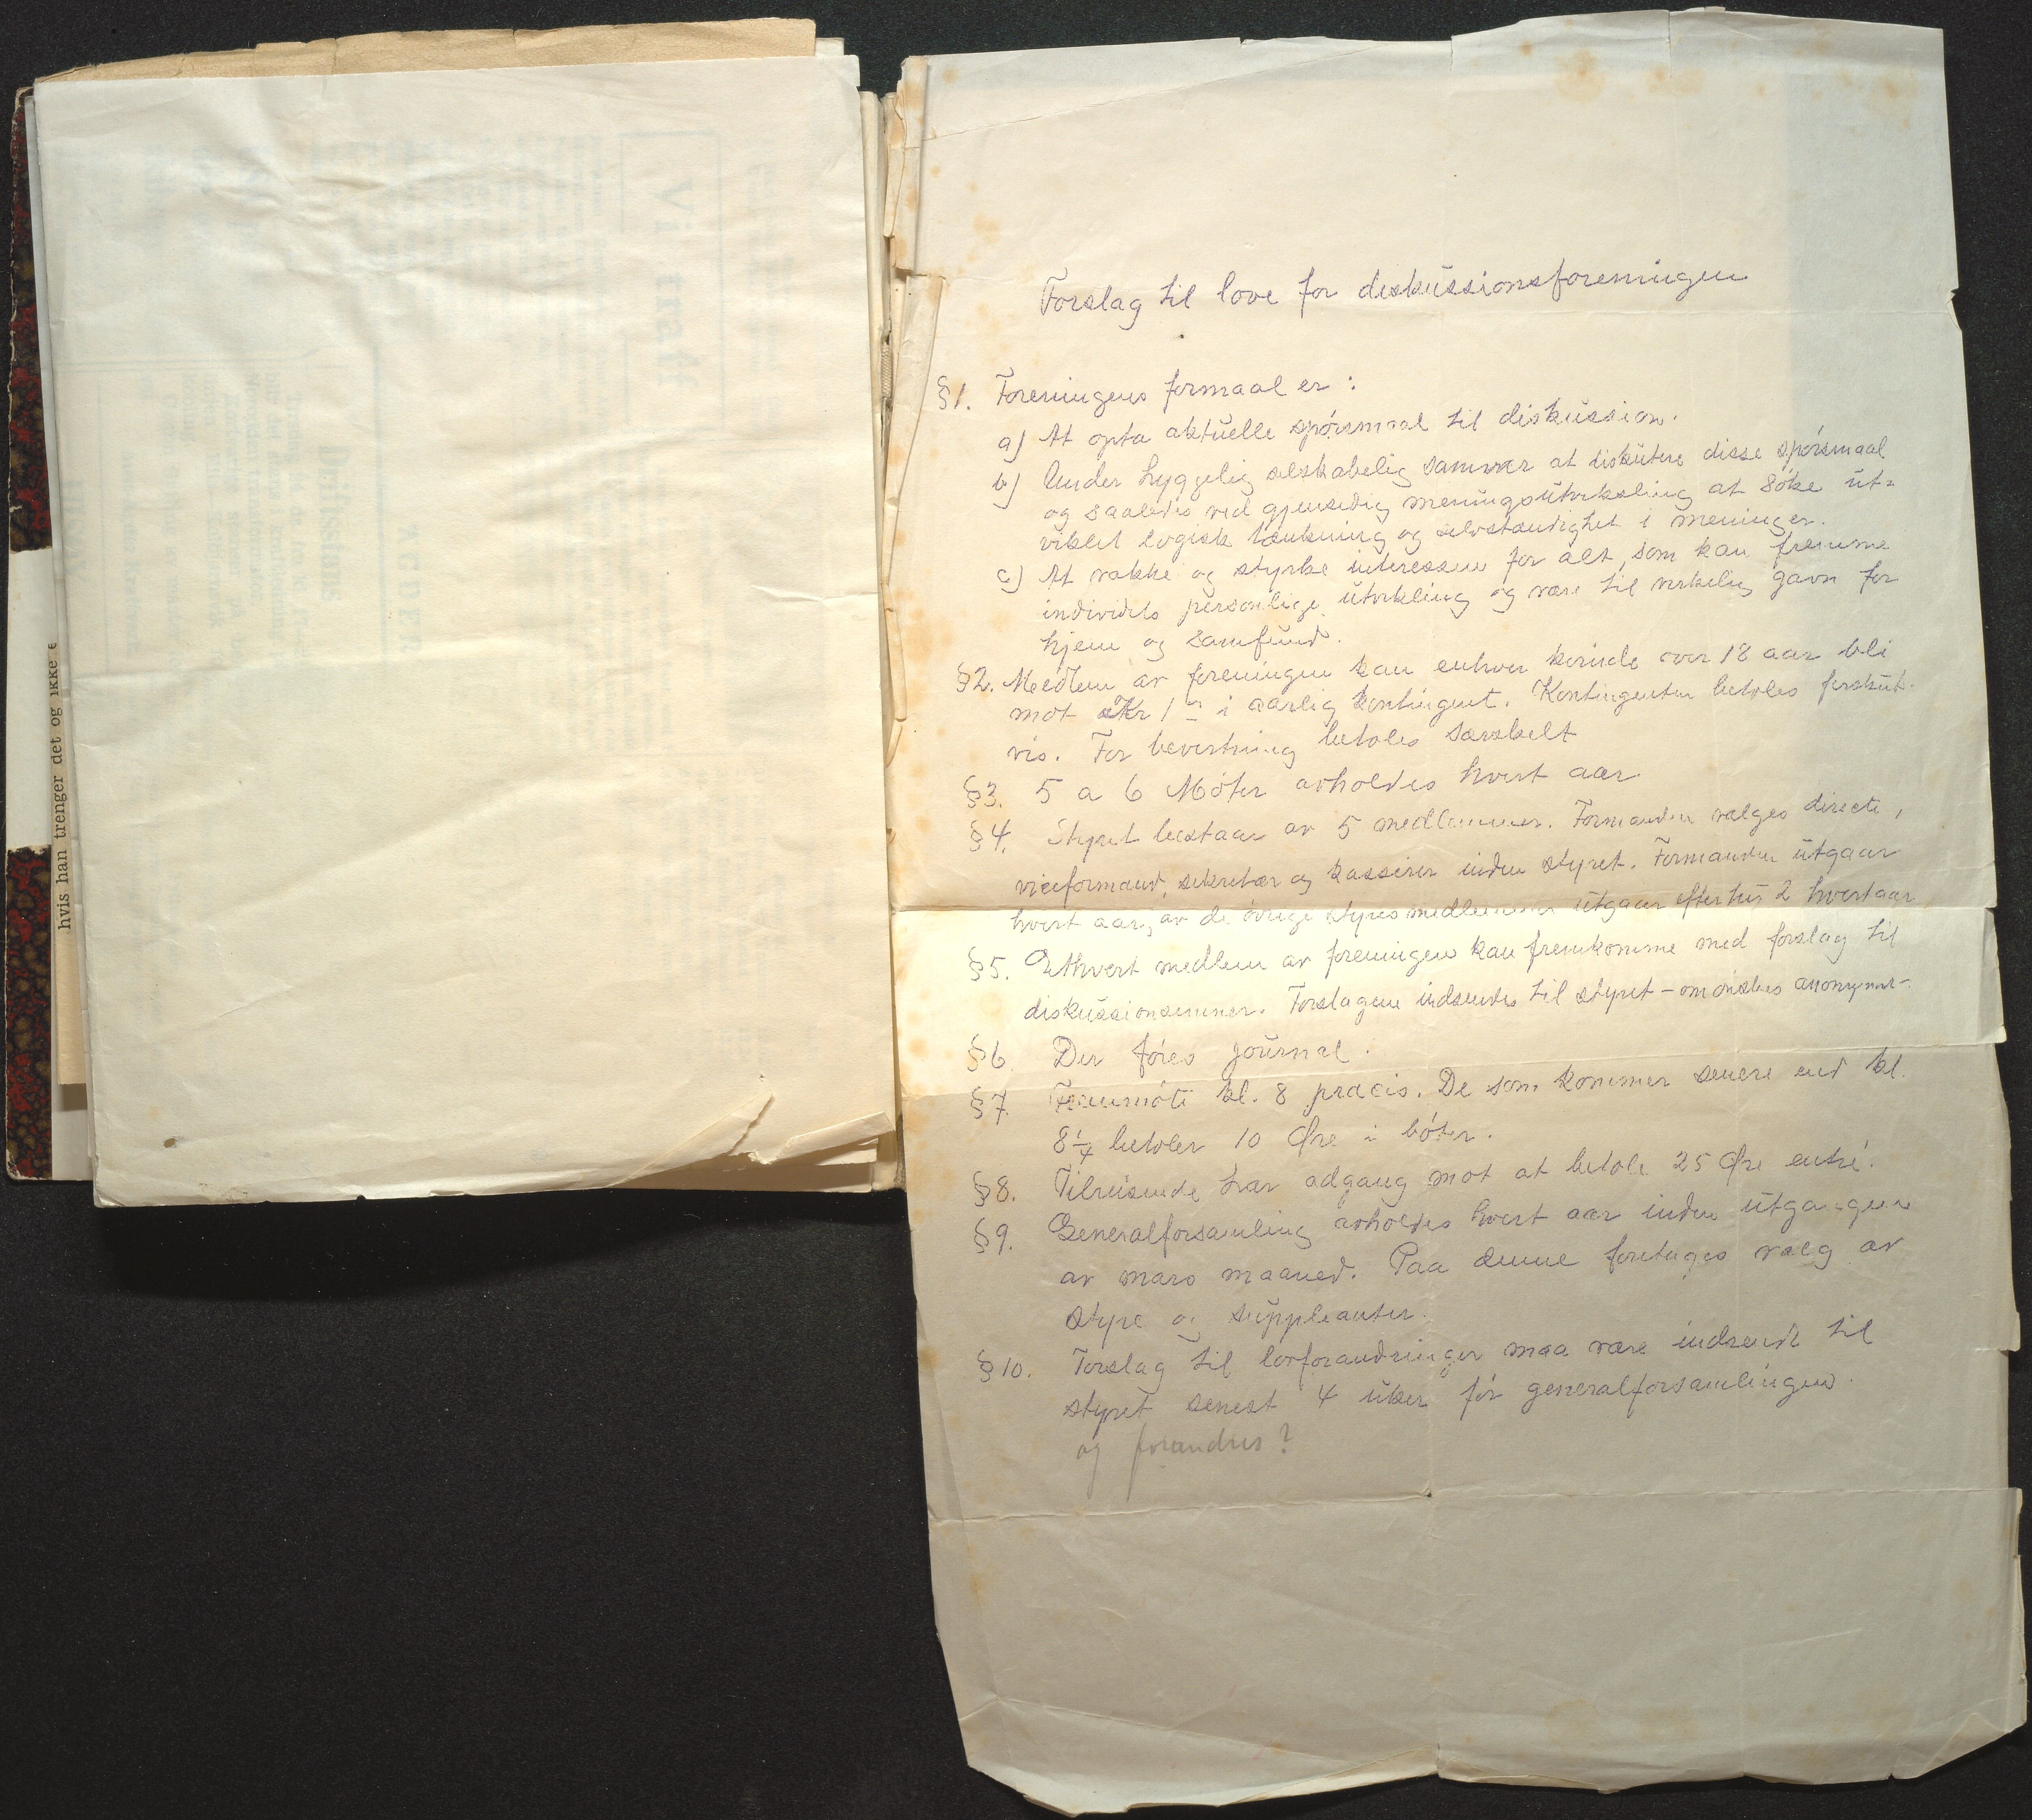 hvis han trenger det og ikke e
Forslag til love for diskussionsforeningen
§1. Foreningens formaal er :
a) At opta aktuelle spørsmaal til diskussion.
b) Under hyggelig selskabelig samvær at diskutere disse spørsmaal
og saaledes ved gjensidig meningsutveksling at søke ut-
viklet logisk tænkning og selvstændighet i meninger.
c) At vække og styrke interessen for alt, som kan fremme
individets personlige utvikling og være til virkelig gavn for
hjem og samfund.
§2. Medlem av foreningen kan enhver kvinde over 18 aar bli
mot Kr 1 i aarlig kontingent. Kontingenten betales forskuts-
vis. For bevertning betales særskelt
§3. 5 a 6 Møter avholdes hvert aar
§4. Styret bestaar av 5 medlemmer. Formanden vælges directe,
viceformand, sekretær og kasserer inden styret. Formanden utgaar
hvert aar, av de øvrige styresmedlemmer utgaar efter tur 2 hvert aar
§5. Ethvert medlem av foreningen kan fremkomme med forslag til
diskussionsemner. Forslagene indsendes til styret - om ønskes anonymt -
§6 Der føres journal.
§7. Fremmøte kl. 8 præcis. De som kommer senere end kl.
8¼ betaler 10 Øre i bøter.
§8. Tilreisende har adgang mot at betale 25 Øre entré.
§9. Generalforsamling avholdes hvert aar inden utgangen
av mars maaned. Paa denne foretages valg av
styre og suppleanter.
§10. Forslag til lovforandringer maa være indsendt til
styret senest 4 uker før generalforsamlingen.
og forandres?